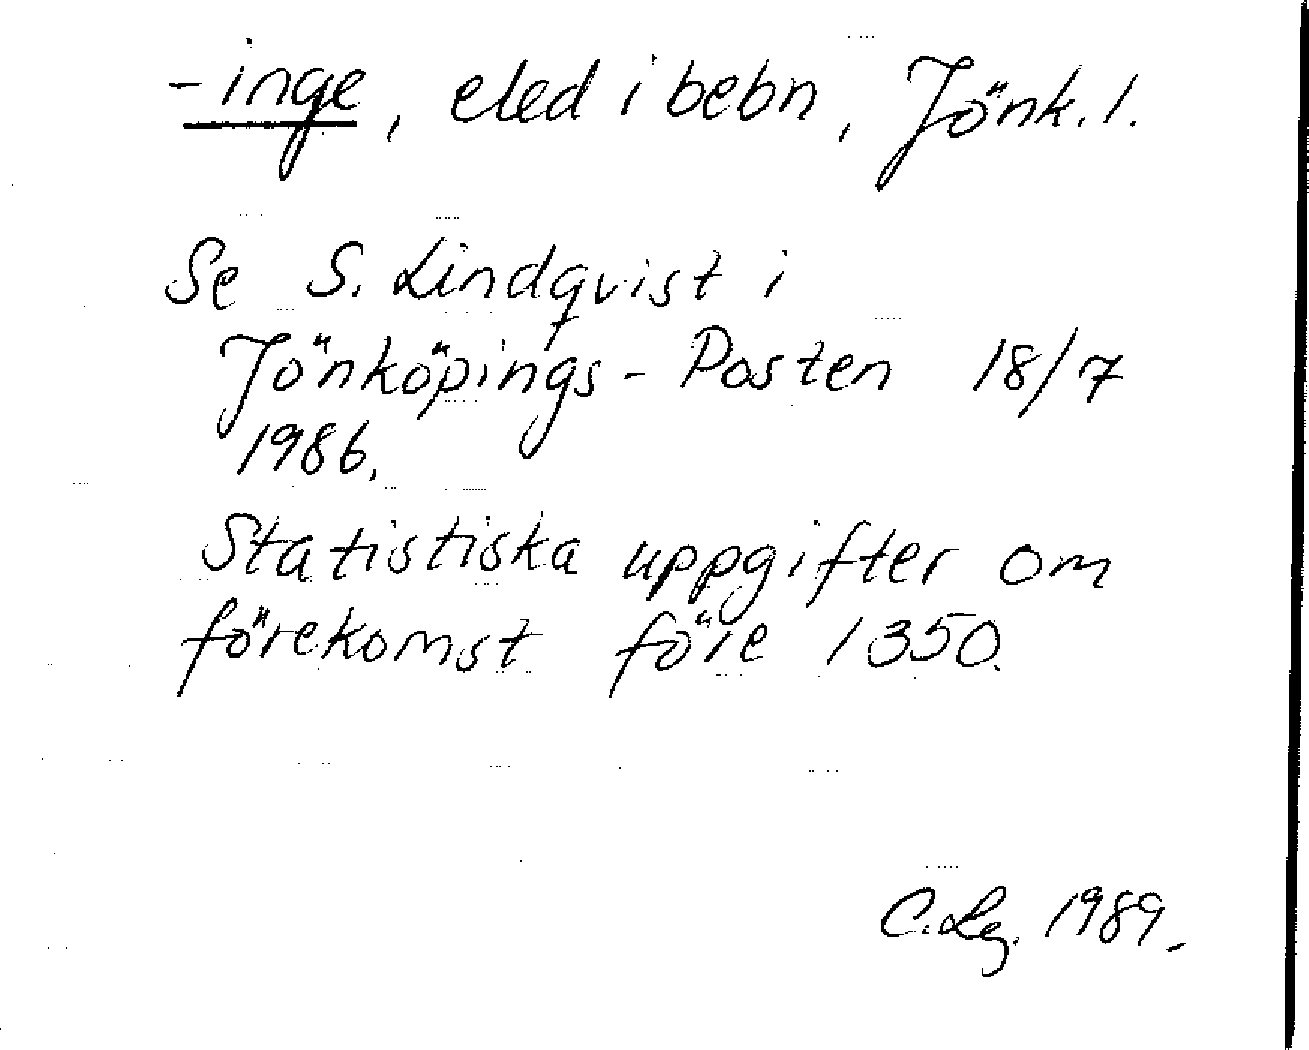 -inge, eled i bebn, Jönk. l.
Se S. Lindqvist i
Jönköpings-Posten 18/7
1986.
Statistiska uppgifter om
förekomst före 1350.
C. Lg. 1989.